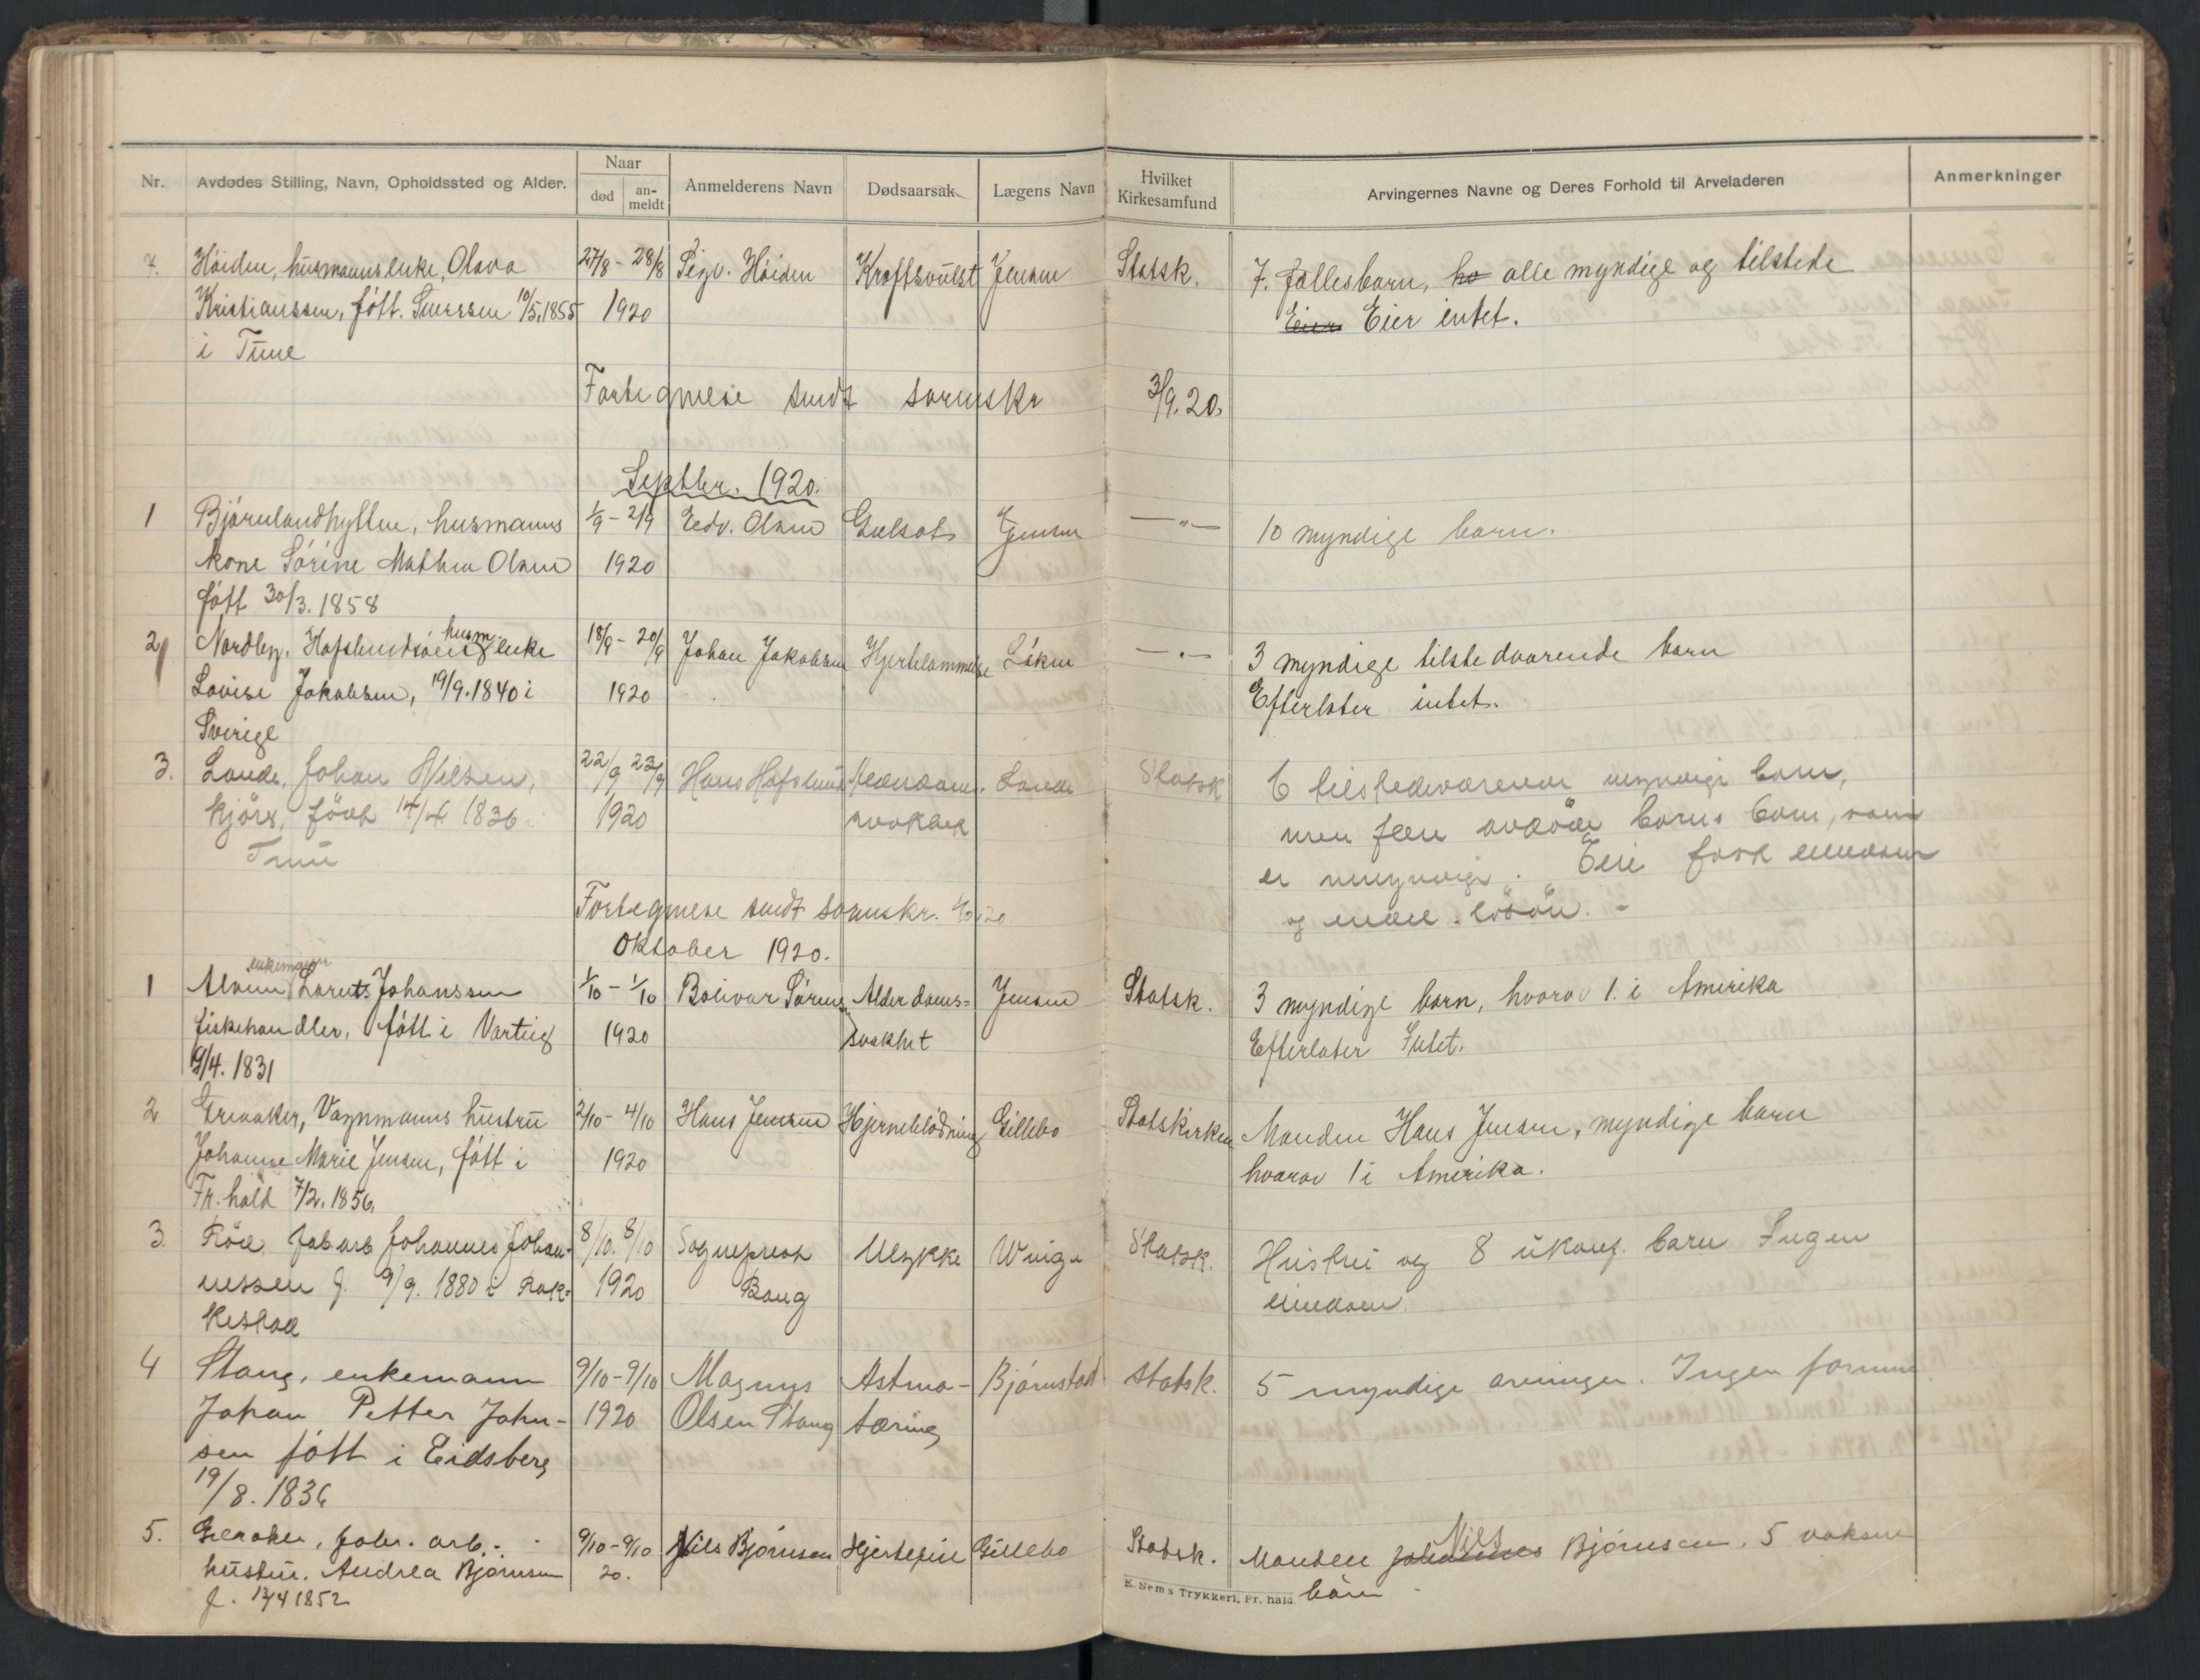 Nr. Avdødes Stilling, Navn, Opholdssted og Alder. Naar død an-meldt Anmelderens Navn Dødsaarsak Lægens Navn Hvilket Kirkesamfund Arvingernes Navne og Deres Forhold til Arveladeren Anmerkninger
7. Höiden, husmannsenke, Olava 27/8 - 28/8 Sigv. Höiden Kræftsvulst Jensen Statsk. 7. fællesbarn, ho alle myndige og tilstede
Kristianssen, født. 10/5.1855 1920 Eier Eier intet.
i Tune
Fortegnelse sendt sorenskr 3/9.20.
Septbr. 1920.
1 Bjørnlandhytten, husmanns 1/9 - 2/9 Edv. Olsen Gulsot Jensen —"— 10 myndige barn.
kone Sörine Mathea Olsen 1920
født 30/3.1858
2 Nordby, Hafslundsöen husm. enke 18/9 - 20/9 Johan Jakobsen Hjertelammelse Löken —"— 3 myndige tilstedværende barn
Lovise Jakobsen, 19/9.1840 i 1920 Efterlater intet.
Sverige
3. Lande, Johan Nilsen, 22/9 23/9 Hans Hafslund Alderdoms. Lande Statsk 6 tilstedeværende myndige barn,
kjörer, född 14/4 1836 1920 svakhet men flere avdöde barns barn, som
Tune er umyndige. Eier fast eiendom
og endel lösöre. -
Fortegnelse sendt sorenskr. 1/10 20.
Oktober 1920.
1 Alvim enkemann Lorents Johanssen 1/10 - 1/10 Bolivar Sörens Alderdoms= Jensen Statsk. 3 myndige barn, hvorav 1. i Amerika
fiskehandler, född i Varteig 1920 svakhet Efterlater Intet.
9/4. 1831
2 Greaaker, Vognmanns hustru 2/10 - 4/10 Hans Jensen Hjerneblödning Gillebo Statskirken Manden Hans Jensen, myndige barn
Johanne Marie Jensen, født i 1920 hvorav 1 i Amerika.
Fr.hald 7/2.1856.
3. Röd Fab arb Johannes Johan- 8/10. 8/10 Sogneprest Ulykke Winge Statsk. Hustru og 8 ukonf. barn Ingen
nessen f. 9/9. 1880 i Rak= 1920 Bang eiendom.
kestad
4 Stang, enkemann 9/10 - 9/10 Magnus Astma- Bjørnstad Statsk. 5 myndige arvinger. Ingen formue
Johan Petter John- 1920 Olsen Stang tæring
sen født i Eidsberg
19/8. 1836
5. Greaker, fabr. arb.- 9/10 - 9/10 Nils Bjørnsen Hjertefeil Gillebo Statsk. Manden Johannes Nils Bjørnsen. 5 voksne
hustru. Andrea Bjørnsen 20. börn -
f. 13/4 1852
E. Sems Trykkeri, Fr. hald